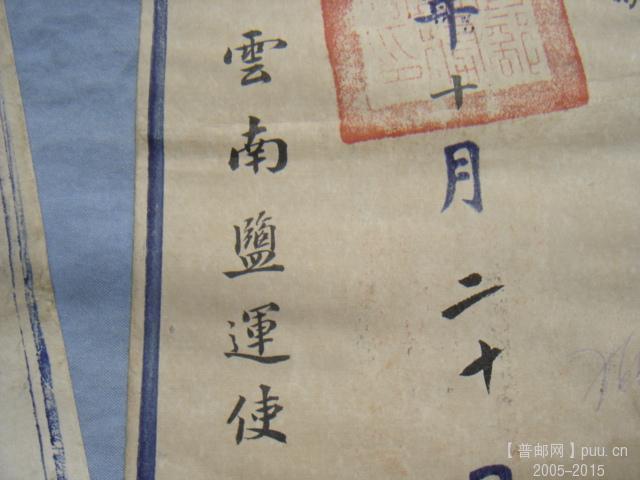 年十月二十日
雲南鹽運使
【普邮网】puu.cn
2005-2015